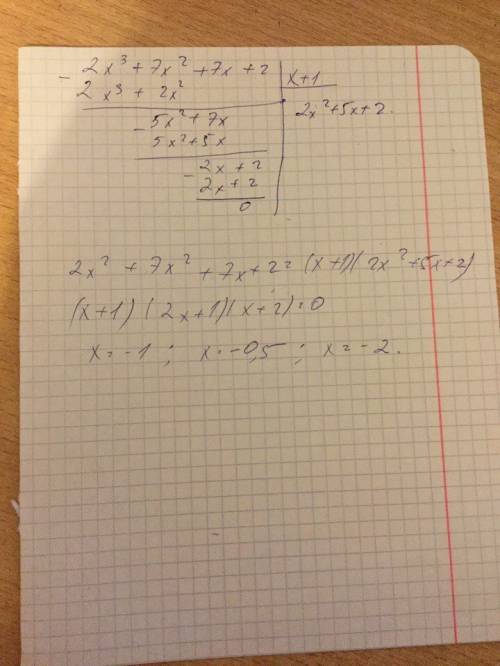 - 2x³ + 7x² + 7x + 2 | x+1
2x³ + 2x² | 2x²+5x+2.
- 5x² + 7x
5x² + 5x
- 2x + 2
2x + 2
0
2x² + 7x² + 7x + 2 = (x+1)(2x²+5x+2)
(x+1) (2x+1)(x+2)=0
x = -1 ; x = -0,5 ; x = -2.